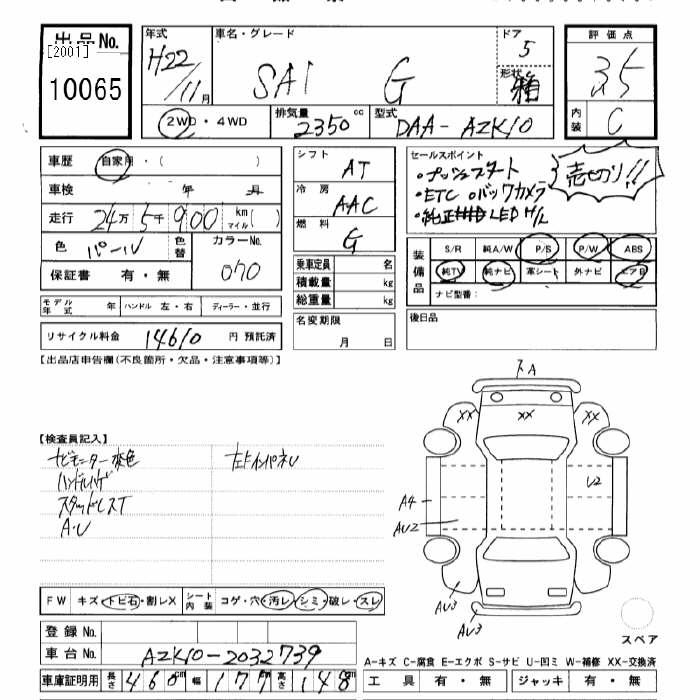 出品No.
[2001]
10065
年式
H22/11月
車名・グレード
SAI G
ドア
5
形状
箱
評価点
3.5
内装
C
2WD・4WD
排気量
2350cc
型式
DAA-AZK10
車歴 自家用・( )
車検 年 月
走行 24万5千900km マイル( )
色 パール
色替
カラーNo.
070
保証書 有・無
シフト
AT
冷房
AAC
燃料
G
乗車定員 名
積載量 kg
総重量 kg
セールスポイント
・プッシュスタート
・ETC ・バックカメラ
・純正 LED H/L
売切り!!
装備品
S/R 純A/W P/S P/W ABS
純TV 純ナビ 革シート 外ナビ エアB
ナビ型番:
モデル年式 年 ハンドル 左・右 ディーラー・並行
名変期限
月 日
後日品
リサイクル料金 14610 円 預託済
【出品店申告欄(不良箇所・欠品・注意事項等)】
【検査員記入】
ナビモニター変色
ハンドルハゲ
スタッドレスT
A・U
左ドインパネU
XX XX XX
A
U2
A4
AU2
AU3
AU3
スペア
FW キズ・トビ石・割レX シート内装 コゲ・穴・汚レ・シミ・破レ・スレ
登録No.
車台No. AZK10-2032739
車庫証明用 長さ 460cm 幅 177cm 高さ 148cm
A-キズ C-腐食 E-エクボ S-サビ U-凹ミ W-補修 XX-交換済
工具 有・無 ジャッキ 有・無